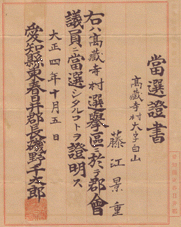 當選證書
高藏寺村大字白山
藤江景重
右ハ高藏寺村選擧區ニ於テ郡會
議員ニ當選シタルコトヲ證明ス
大正四年十月五日
愛知縣東春日井郡長磯野千五郎